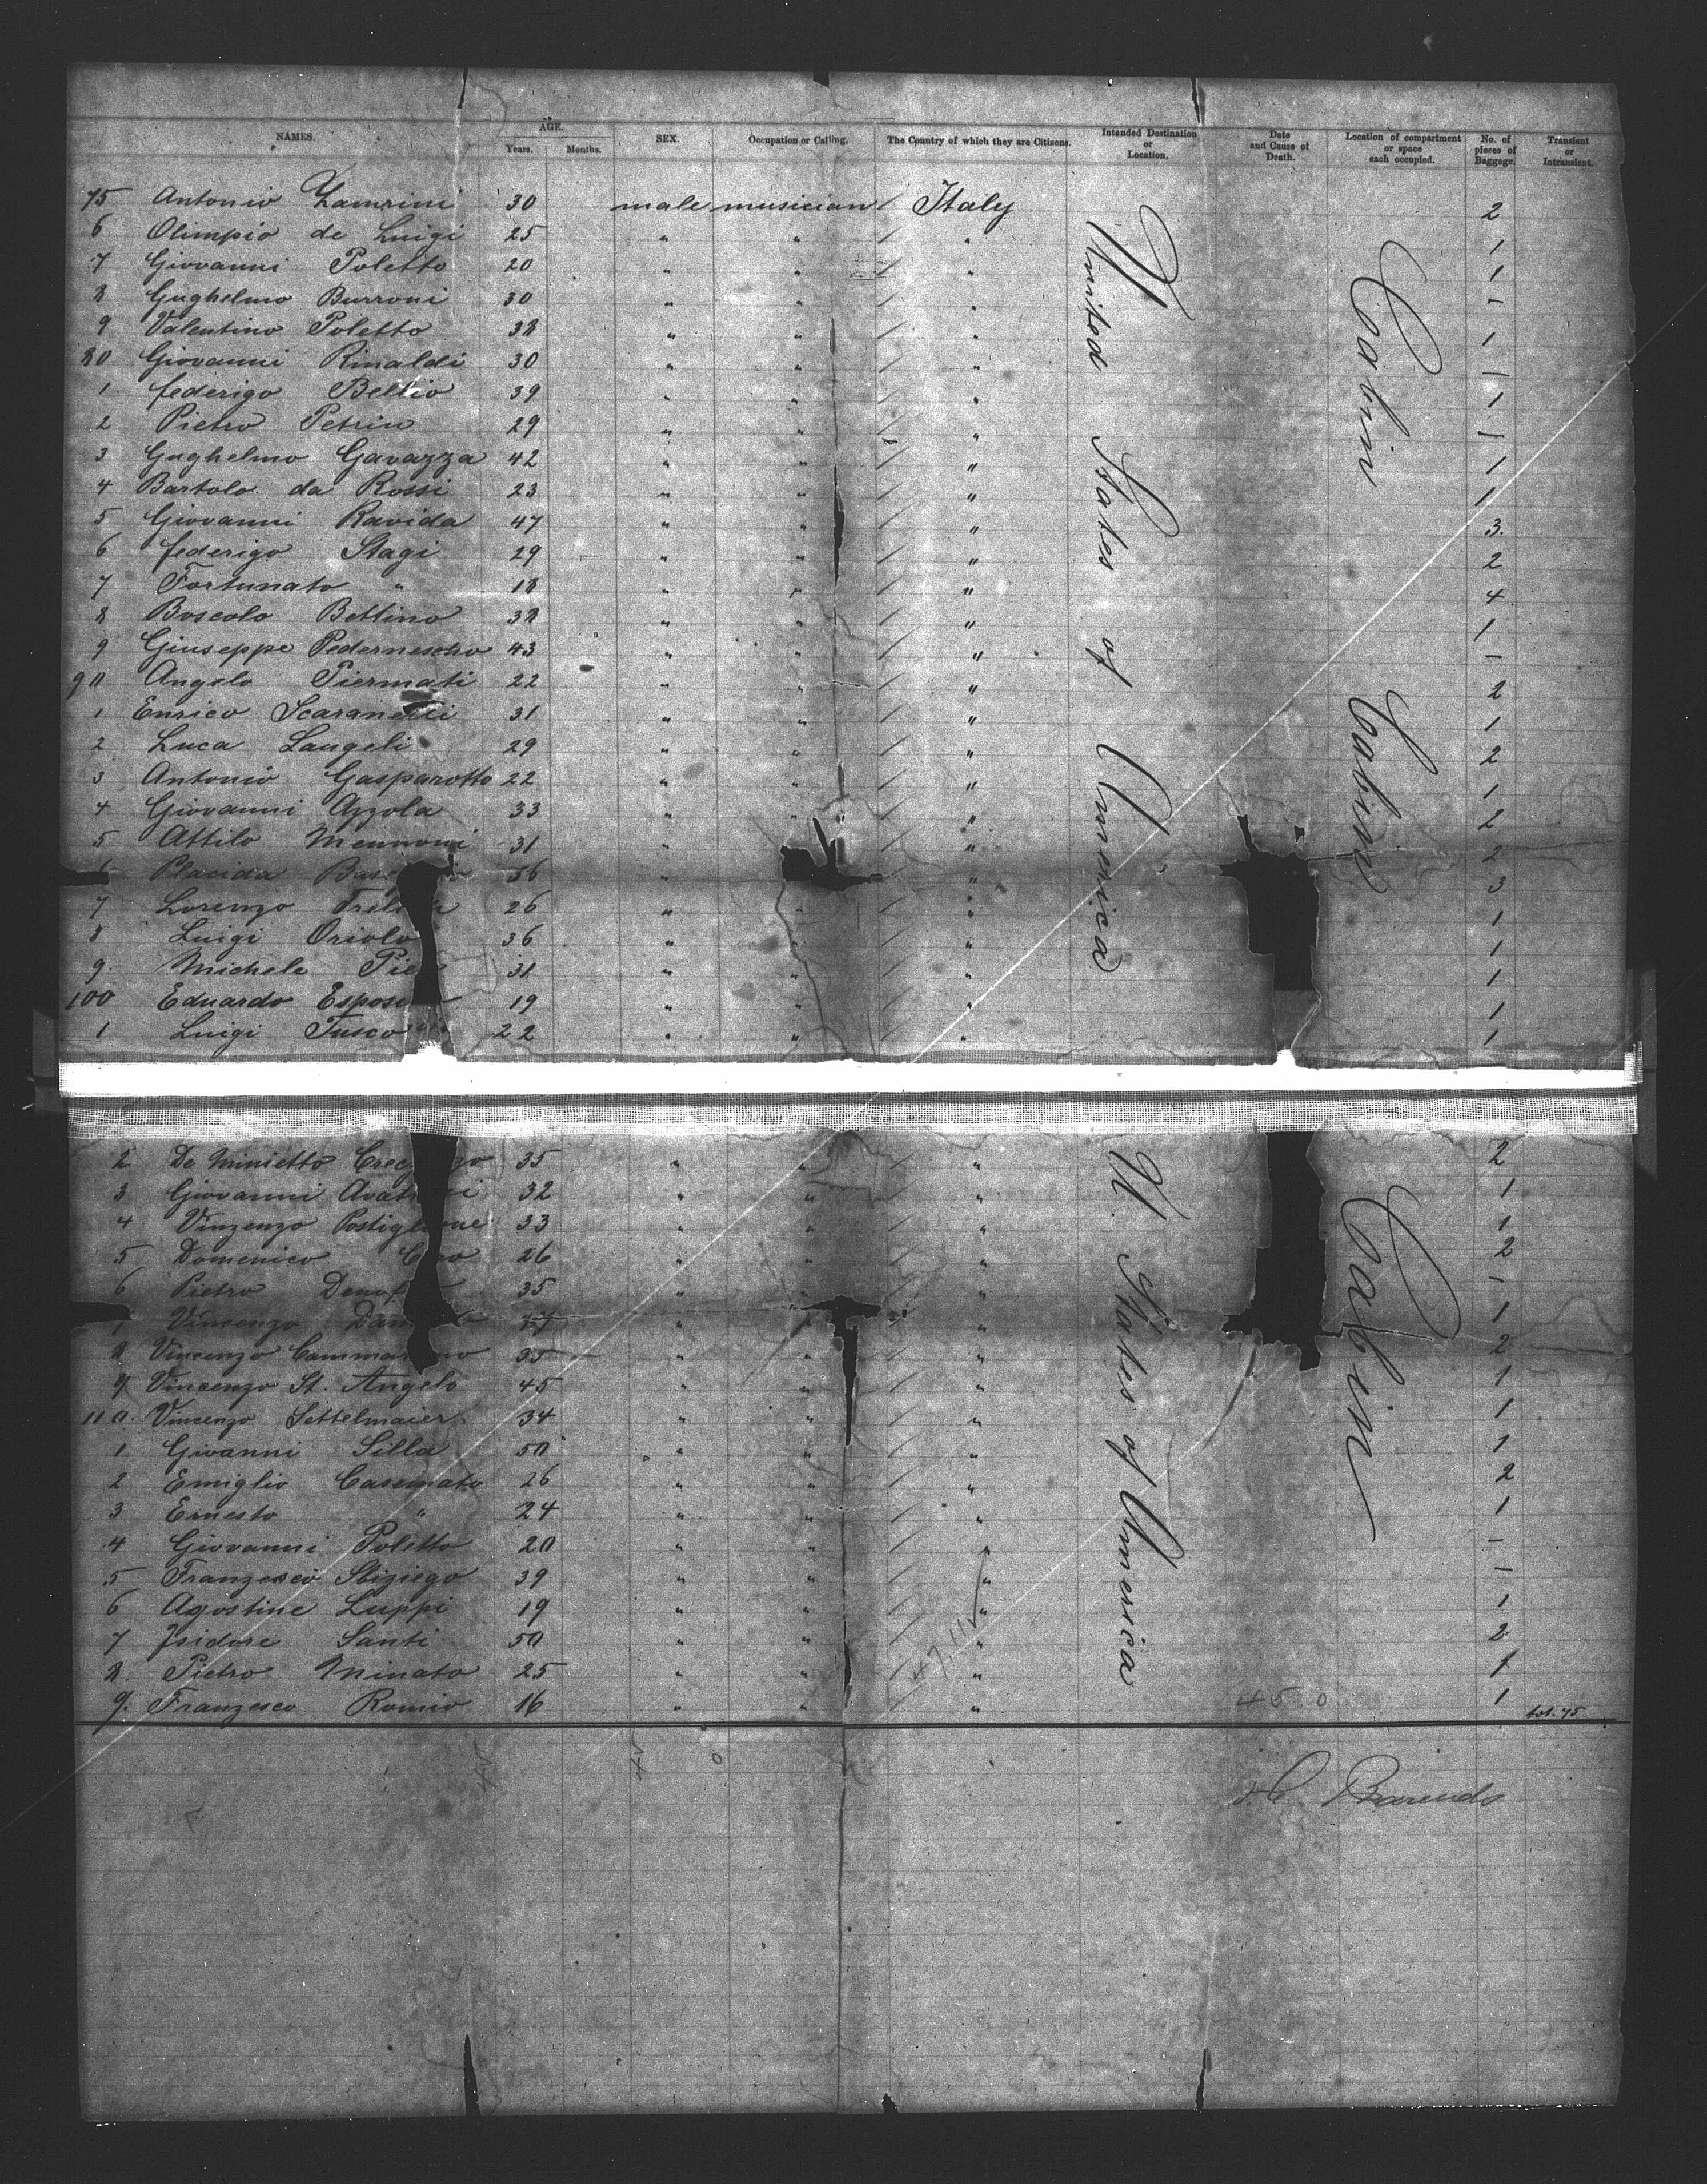 NAMES. AGE. Years. Months. SEX. Occupation or Calling. The Country of which they are Citizens. Intended Destination or Location. Date and Cause of Death. Location of compartment or space each occupied. No. of pieces of Baggage. Transient or Intransient.
75 Antonio Zamrini 30 male musician / Italy 2
6 Olimpio de Luigi 25 " " / " 1
7 Giovanni Poletto 20 " " / " 1
8 Gughelmo Burroni 30 " " / " –
9 Valentino Poletto 38 " " / " 1
80 Giovanni Rinaldi 30 " " / " –
1 Federigo Bellio 39 " " / " 1
2 Pietro Petrin 29 " " / " –
3 Gughelmo Gavazza 42 " " / " 1
4 Bartolo da Rossi 23 " " / " 1
5 Giovanni Ravida 47 " " / " 3.
6 Federigo Stagi 29 " " / " 2
7 Fortunato " 18 " " / " 4
8 Boscolo Bettino 38 " " / " 1
9 Giuseppe 43 " " / " –
90 Angelo Piermati 22 " " / " 2
1 Enrico 31 " " / " 1
2 Luca Langeli 29 " " / " 2
3 Antonio Gasparotto 22 " " / " 1
4 Giovanni Azzola 33 " " / " 2
5 Attilo Mennoni 31 " " / " 2
6 Placida 56 " " / " 3
7 Lorenzo 26 " " / " 1
8 Luigi Oriolo 36 " " / " 1
9. Michele 31 " " / " 1
100 Eduardo 19 " " / " 1
1 Luigi 22 " " / " 1
United States of America
Cabin Cabin
2 De Minietto 35 " " / " 2
3 Giovanni 32 " " / " 1
4 Vinzenzo Postiglione 33 " " / " 1
5 Domenico 26 " " / " 2
6 Pietro 35 " " / " –
7 Vincenzo " " / " 1
8 Vincenzo 35 " " / " 2
9 Vincenzo St. Angelo 45 " " / " 1
110. Vincenzo Settelmaier 34 " " / " 1
1 Giovanni Silla 50 " " / " 1
2 Emiglio Casemato 26 " " / " 2
3 Ernesto " 24 " " / " 1
4 Giovanni Poletto 20 " " / " –
5 Franzesco 39 " " / " –
6 Agostine Luppi 19 " " / " 1
7 Isidore Santi 50 " " / " 2
8 Pietro Minato 25 " " / " 1
9. Franzesco Romio 16 " " / " 1 tot. 75
U. States of America
Cabin
450
H. Barends